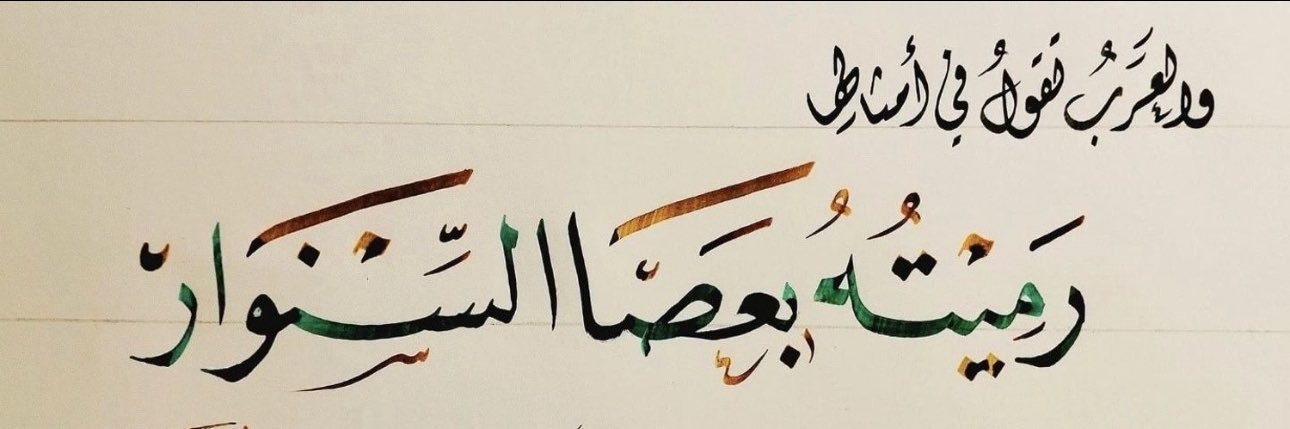 والعَربُ تقولُ في أمثالها
رَميْتُهُ بعَصَا السِّنْوَارْ